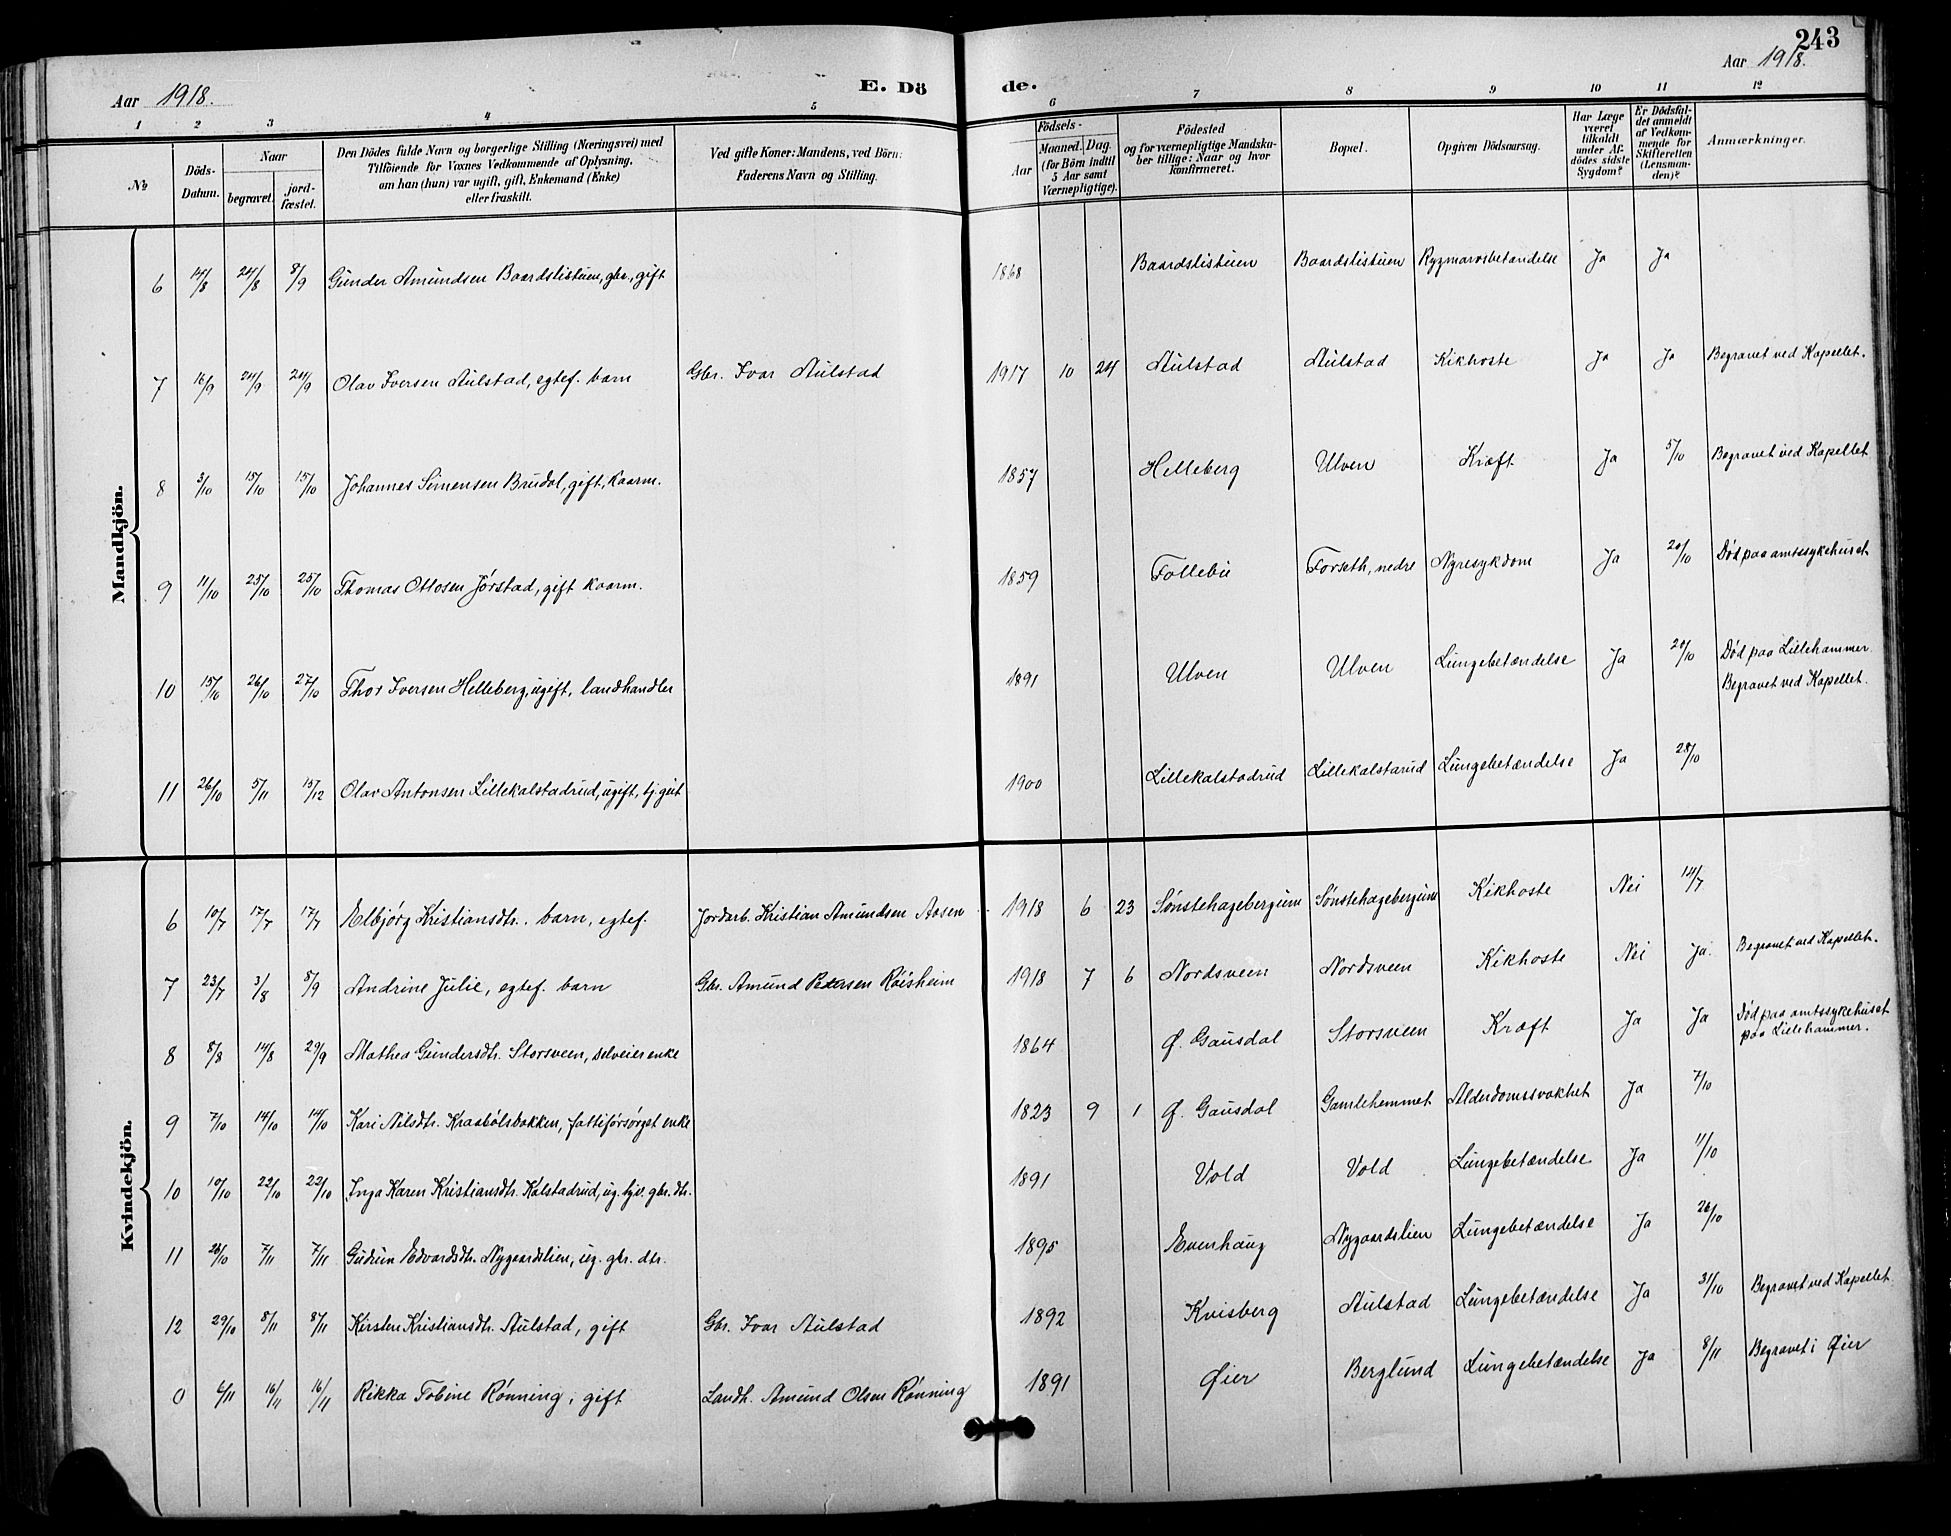 243
Aar 1918. E. Dö de. Aar 1918.
1 2 3 4 5 6 7 8 9 10 11 12
№
Döds-Datum.
Naar
begravet. jord-fæstet.
Den Dödes fulde Navn og borgerlige Stilling (Næringsvei) med
Tilföiende for Voxnes Vedkommende af Oplysning,
om han (hun) var ugift, gift, Enkemand (Enke)
eller fraskilt.
Ved gifte Koner: Mandens, ved Börn:
Faderens Navn og Stilling.
Födsels-
Aar Maaned. Dag.
(for Börn indtil
5 Aar samt
Værnepligtige).
Födested
og for værnepligtige Mandska-
ber tillige: Naar og hvor
konfirmeret.
Bopæl.
Opgiven Dödsaarsag.
Har Læge
været
tilkaldt
under Af-
dödes sidste
Sygdom?
Er Dödsfal-
det anmeldt
af Vedkom-
mende for
Skifteretten
(Lensman-
den)?
Anmærkninger.
Mandkjön.
6 14/8 24/8 8/9 Gunder Amundsen Baardslistuen, gbr., gift 1868 Baardslistuen Baardslistuen Rygmarvsbetændelse Ja Ja
7 16/9 24/9 24/9 Olav Iversen Aulstad, egtef. barn Gbr. Ivar Aulstad 1917 10 24 Aulstad Aulstad Kikhoste Ja Ja Begravet ved Kapellet.
8 3/10 15/10 15/10 Johannes Simensen Brudal, gift, kaarm. 1857 Helleberg Ulven Kræft Ja 5/10 Begravet ved Kapellet
9 11/10 25/10 25/10 Thomas Ottosen Jørstad, gift kaarm. 1859 Follebu Forseth, nedre Nyresykdom Ja 20/10 Død paa amtssykehuset
10 15/10 26/10 27/10 Thor Iversen Helleberg, ugift, landhandler 1891 Ulven Ulven Lungebetændelse Ja 20/10 Død paa Lillehammer.
Begravet ved Kapellet.
11 26/10 5/11 15/12 Olav Antonsen Lillekalstadrud, ugift, tj.gut 1900 Lillekalstadrud Lillekalstarud Lungebetændelse Ja 28/10
Kvindekjön.
6 10/7 17/7 17/7 Elbjørg Kristiansdtr. barn, egtef. Jordarb. Kristian Amundsen Aasen 1918 6 23 Sønstehagebergum Sønstehagebergum Kikhoste Nei 14/7
7 23/7 3/8 8/9 Andrine Julie, egtef. barn Gbr. Amund Pedersen Røisheim 1918 7 6 Nordsveen Nordsveen Kikhoste Nei Ja. Begravet ved Kapellet.
8 8/8 14/8 29/9 Mathea Gundersdtr. Storsveen, selveierenke 1864 Ø. Gausdal Storsveen Kræft Ja Ja Død paa amtssykehuset
paa Lillehammer.
9 7/10 14/10 14/10 Kari Nilsdtr. Kraabølsbakken, fattiforsørget enke 1823 9 1 Ø. Gausdal Gamlehemmet Alderdomssvakhet Ja 7/10
10 10/10 22/10 22/10 Inga Karen Kristiansdtr. Kalstadrud, ug. hjv. gbr. dtr. 1891 Vold Vold Lungebetændelse Ja 11/10
11 23/10 7/11 7/11 Gudrun Edvardsdtr. Nygaardslien, ug. gbr. dtr. 1895 Evenhaug Nygaardslien Lungebetændelse Ja 26/10
12 29/10 8/11 8/11 Kirsten Kristiansdtr. Aulstad, gift Gbr. Ivar Aulstad 1892 Kvisberg Aulstad Lungebetændelse Ja 31/10 Begravet ved Kapellet
0 6/11 16/11 16/11 Rikka Tobine Rønning, gift Landh. Amund Olsen Rønning 1891 Øier Berglund Lungebetændelse Ja 8/11 Begravet i Øier